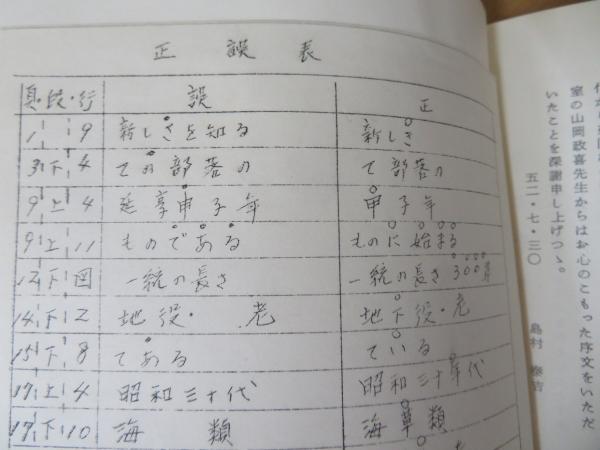 正誤表
頁・段・行 誤 正
1 9 新しさを知る 新しき
3 下 4 ての部落の て部落の
9 上 4 延享申子年 甲子年
9 上 11 ものである ものに始まる
12 下 図 一統の長さ 一統の長さ300
14 下 2 地役・ 老 地下役・老
15 下 8 である ている
17 上 4 昭和三十代 昭和三十年代
17 下 10 海 類 海草類
室の山岡政喜先生からはお心のこもった序文をいただ
いたことを深謝申し上げつゝ。
五二・七・三〇
島村 泰吉